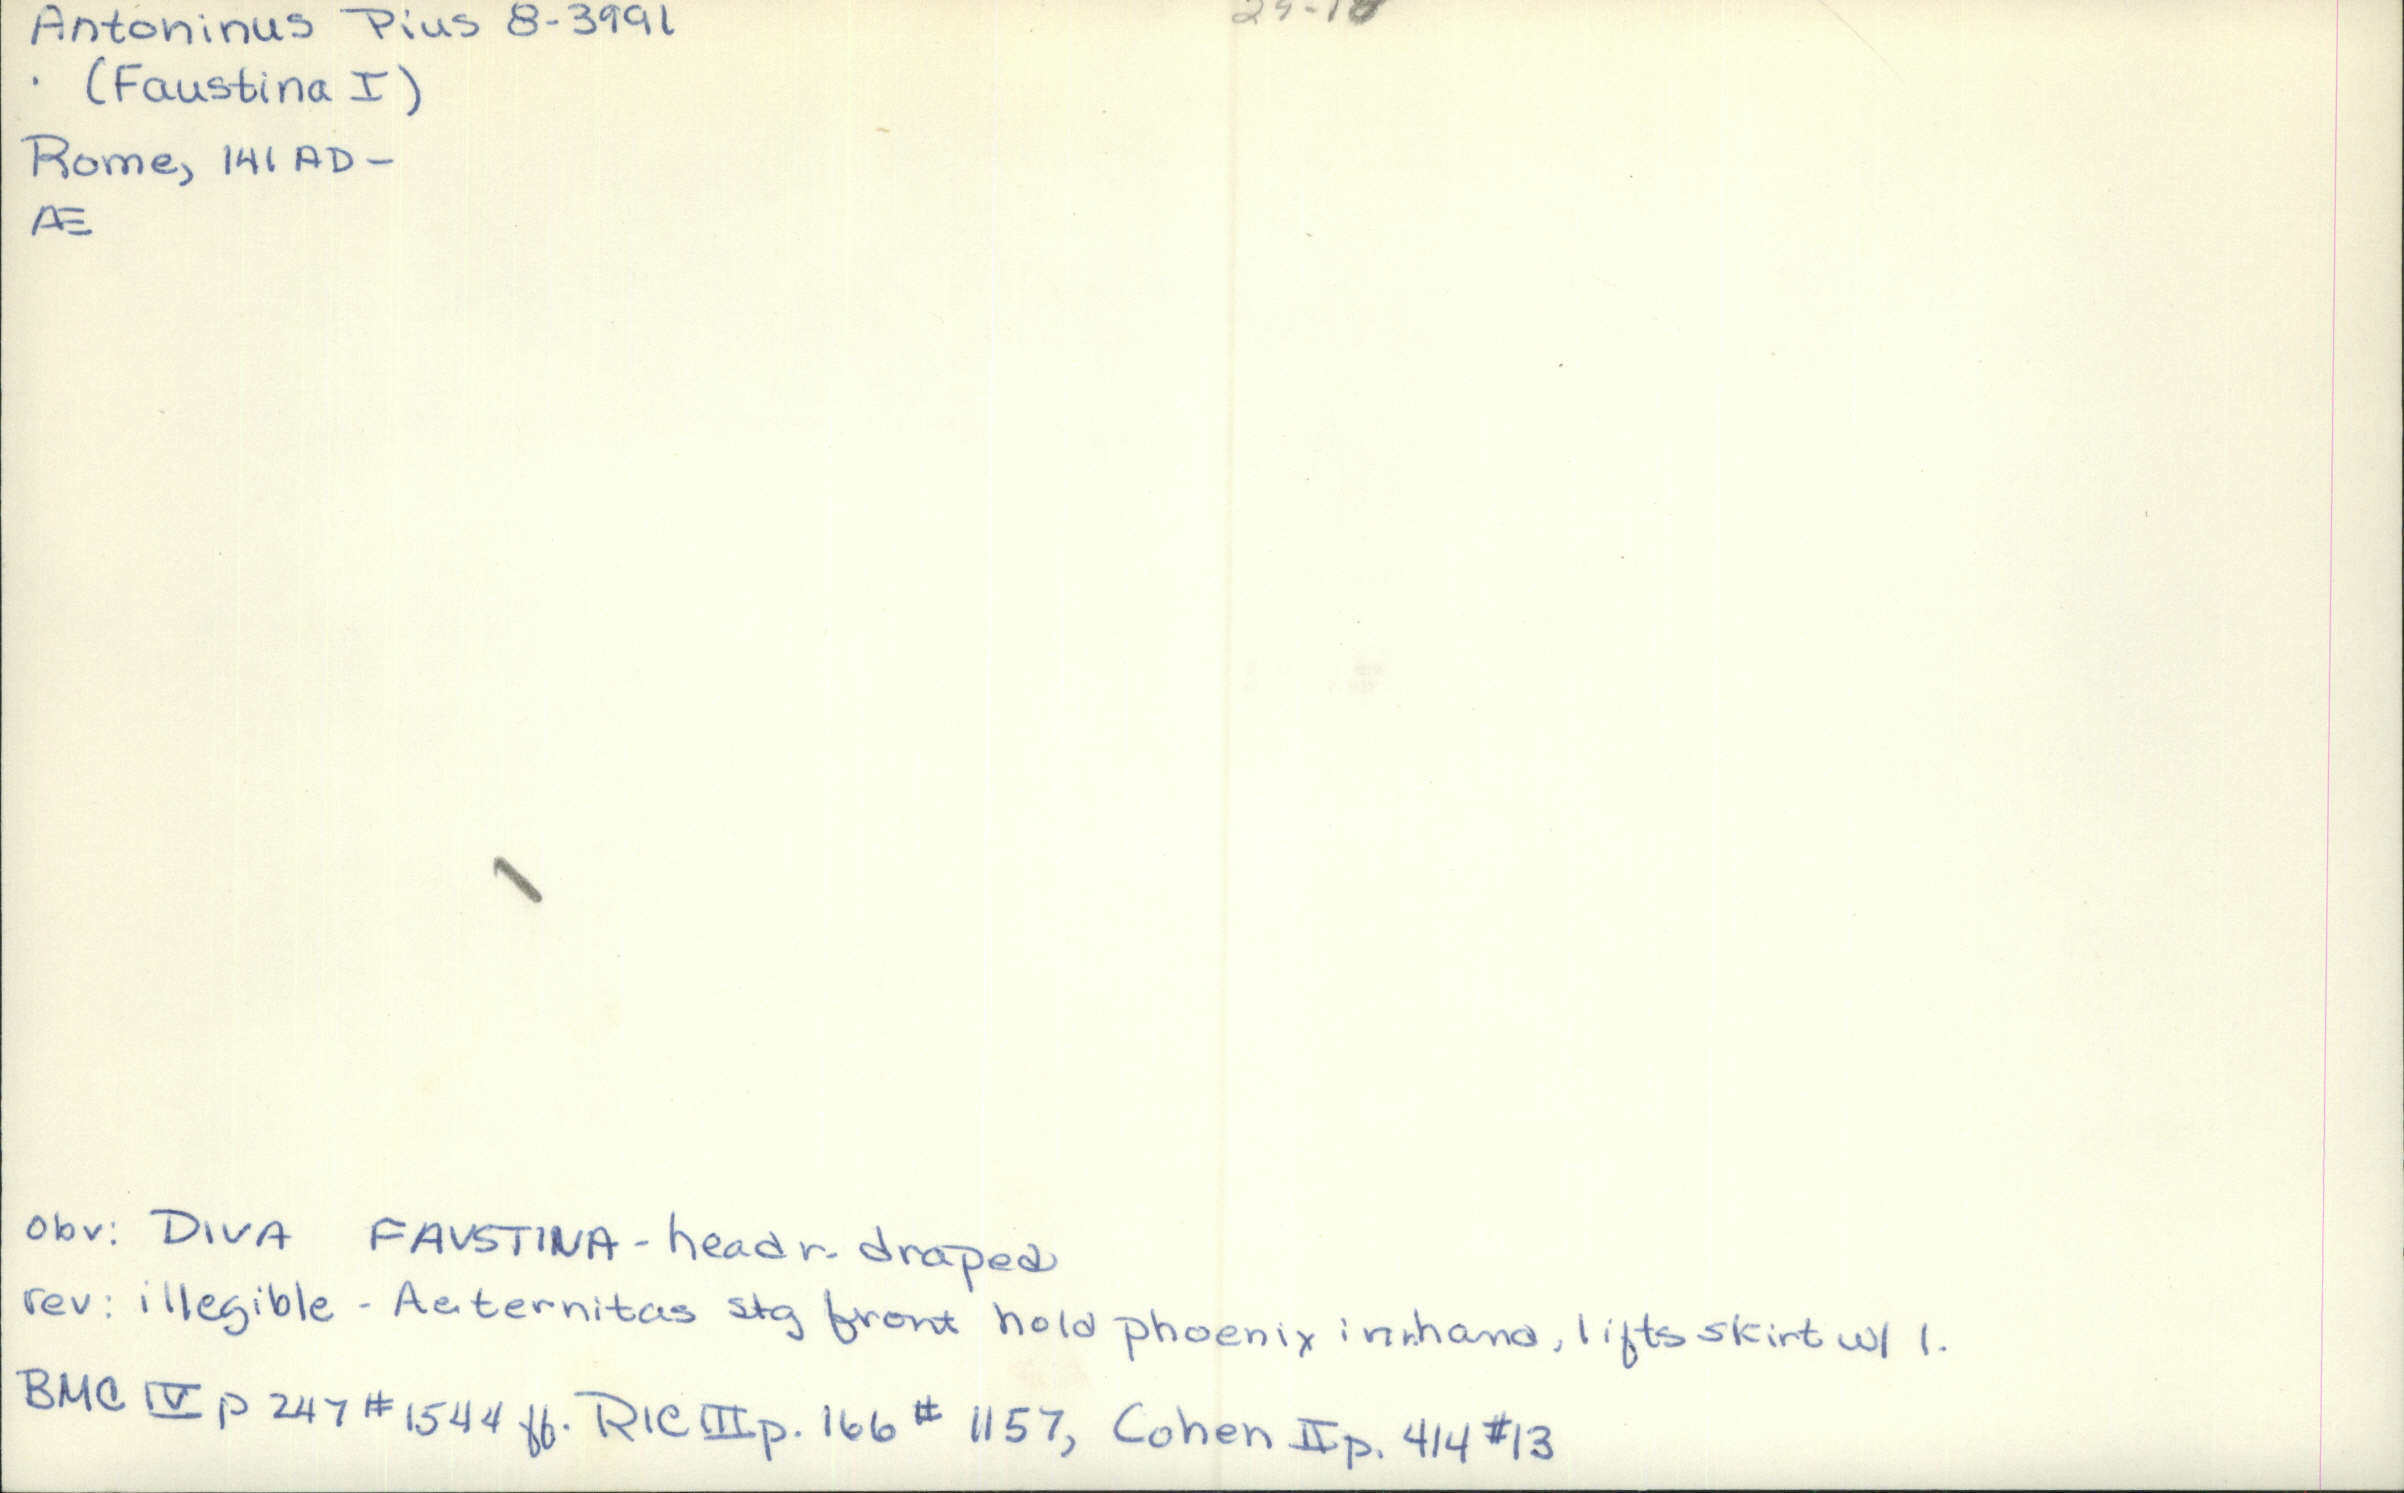 Antoninus Pius 8-3991
(Faustina I)
Rome, 141 AD-
AE
obv: DIVA FAVSTINA - head r. draped
rev: illegible - Aeternitas stg front hold phoenix in r. hand, lifts skirt w/ l.
BMC IV p 247 # 1544 ff. RIC III p. 166 # 1157, Cohen II p. 414 #13